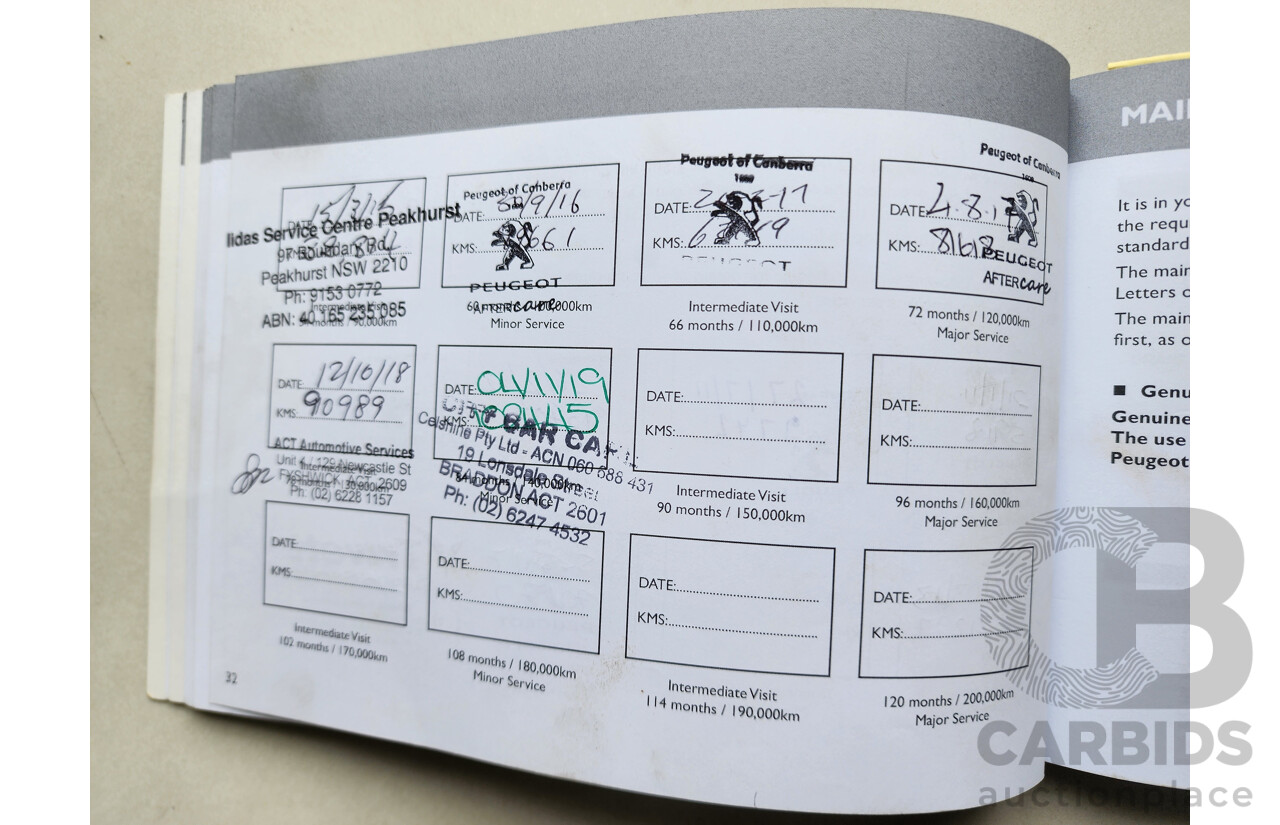 MAI
It is in yo
the requ
standard
The main
Letters o
The main
first, as o
■ Genu
Genuine
The use
Peugeot
DATE: 15/3/
KMS:
Intermediate Visit
54 months / 90,000km
Ilidas Service Centre Peakhurst
97 Boundary Rd
Peakhurst NSW 2210
Ph: 9153 0772
ABN: 40 165 235 085
Peugeot of Canberra
DATE: /9/16
KMS: 661
PEUGEOT
AFTERcare
60 months / 100,000km
Minor Service
Peugeot of Canberra
DATE: 17
KMS:
PEUGEOT
Intermediate Visit
66 months / 110,000km
Peugeot of Canberra
DATE: 4.8.1
KMS: 8161
PEUGEOT
AFTERcare
72 months / 120,000km
Major Service
DATE: 12/10/18
KMS: 90989
Intermediate Visit
78 months / 130,000km
ACT Automotive Services
Unit 4 / 129 Newcastle St
FYSHWICK ACT 2609
Ph: (02) 6228 1157
DATE: 04/11/19
KMS:
CAR CA
Celshine Pty Ltd - ACN 060 688 431
19 Lonsdale Street
BRADDON ACT 2601
Ph: (02) 6247 4532
84 months / 140,000km
Minor Service
DATE:
KMS:
Intermediate Visit
90 months / 150,000km
DATE:
KMS:
96 months / 160,000km
Major Service
DATE:
KMS:
Intermediate Visit
102 months / 170,000km
DATE:
KMS:
108 months / 180,000km
Minor Service
DATE:
KMS:
Intermediate Visit
114 months / 190,000km
DATE:
KMS:
120 months / 200,000km
Major Service
32
CB
CARBIDS
auctionplace